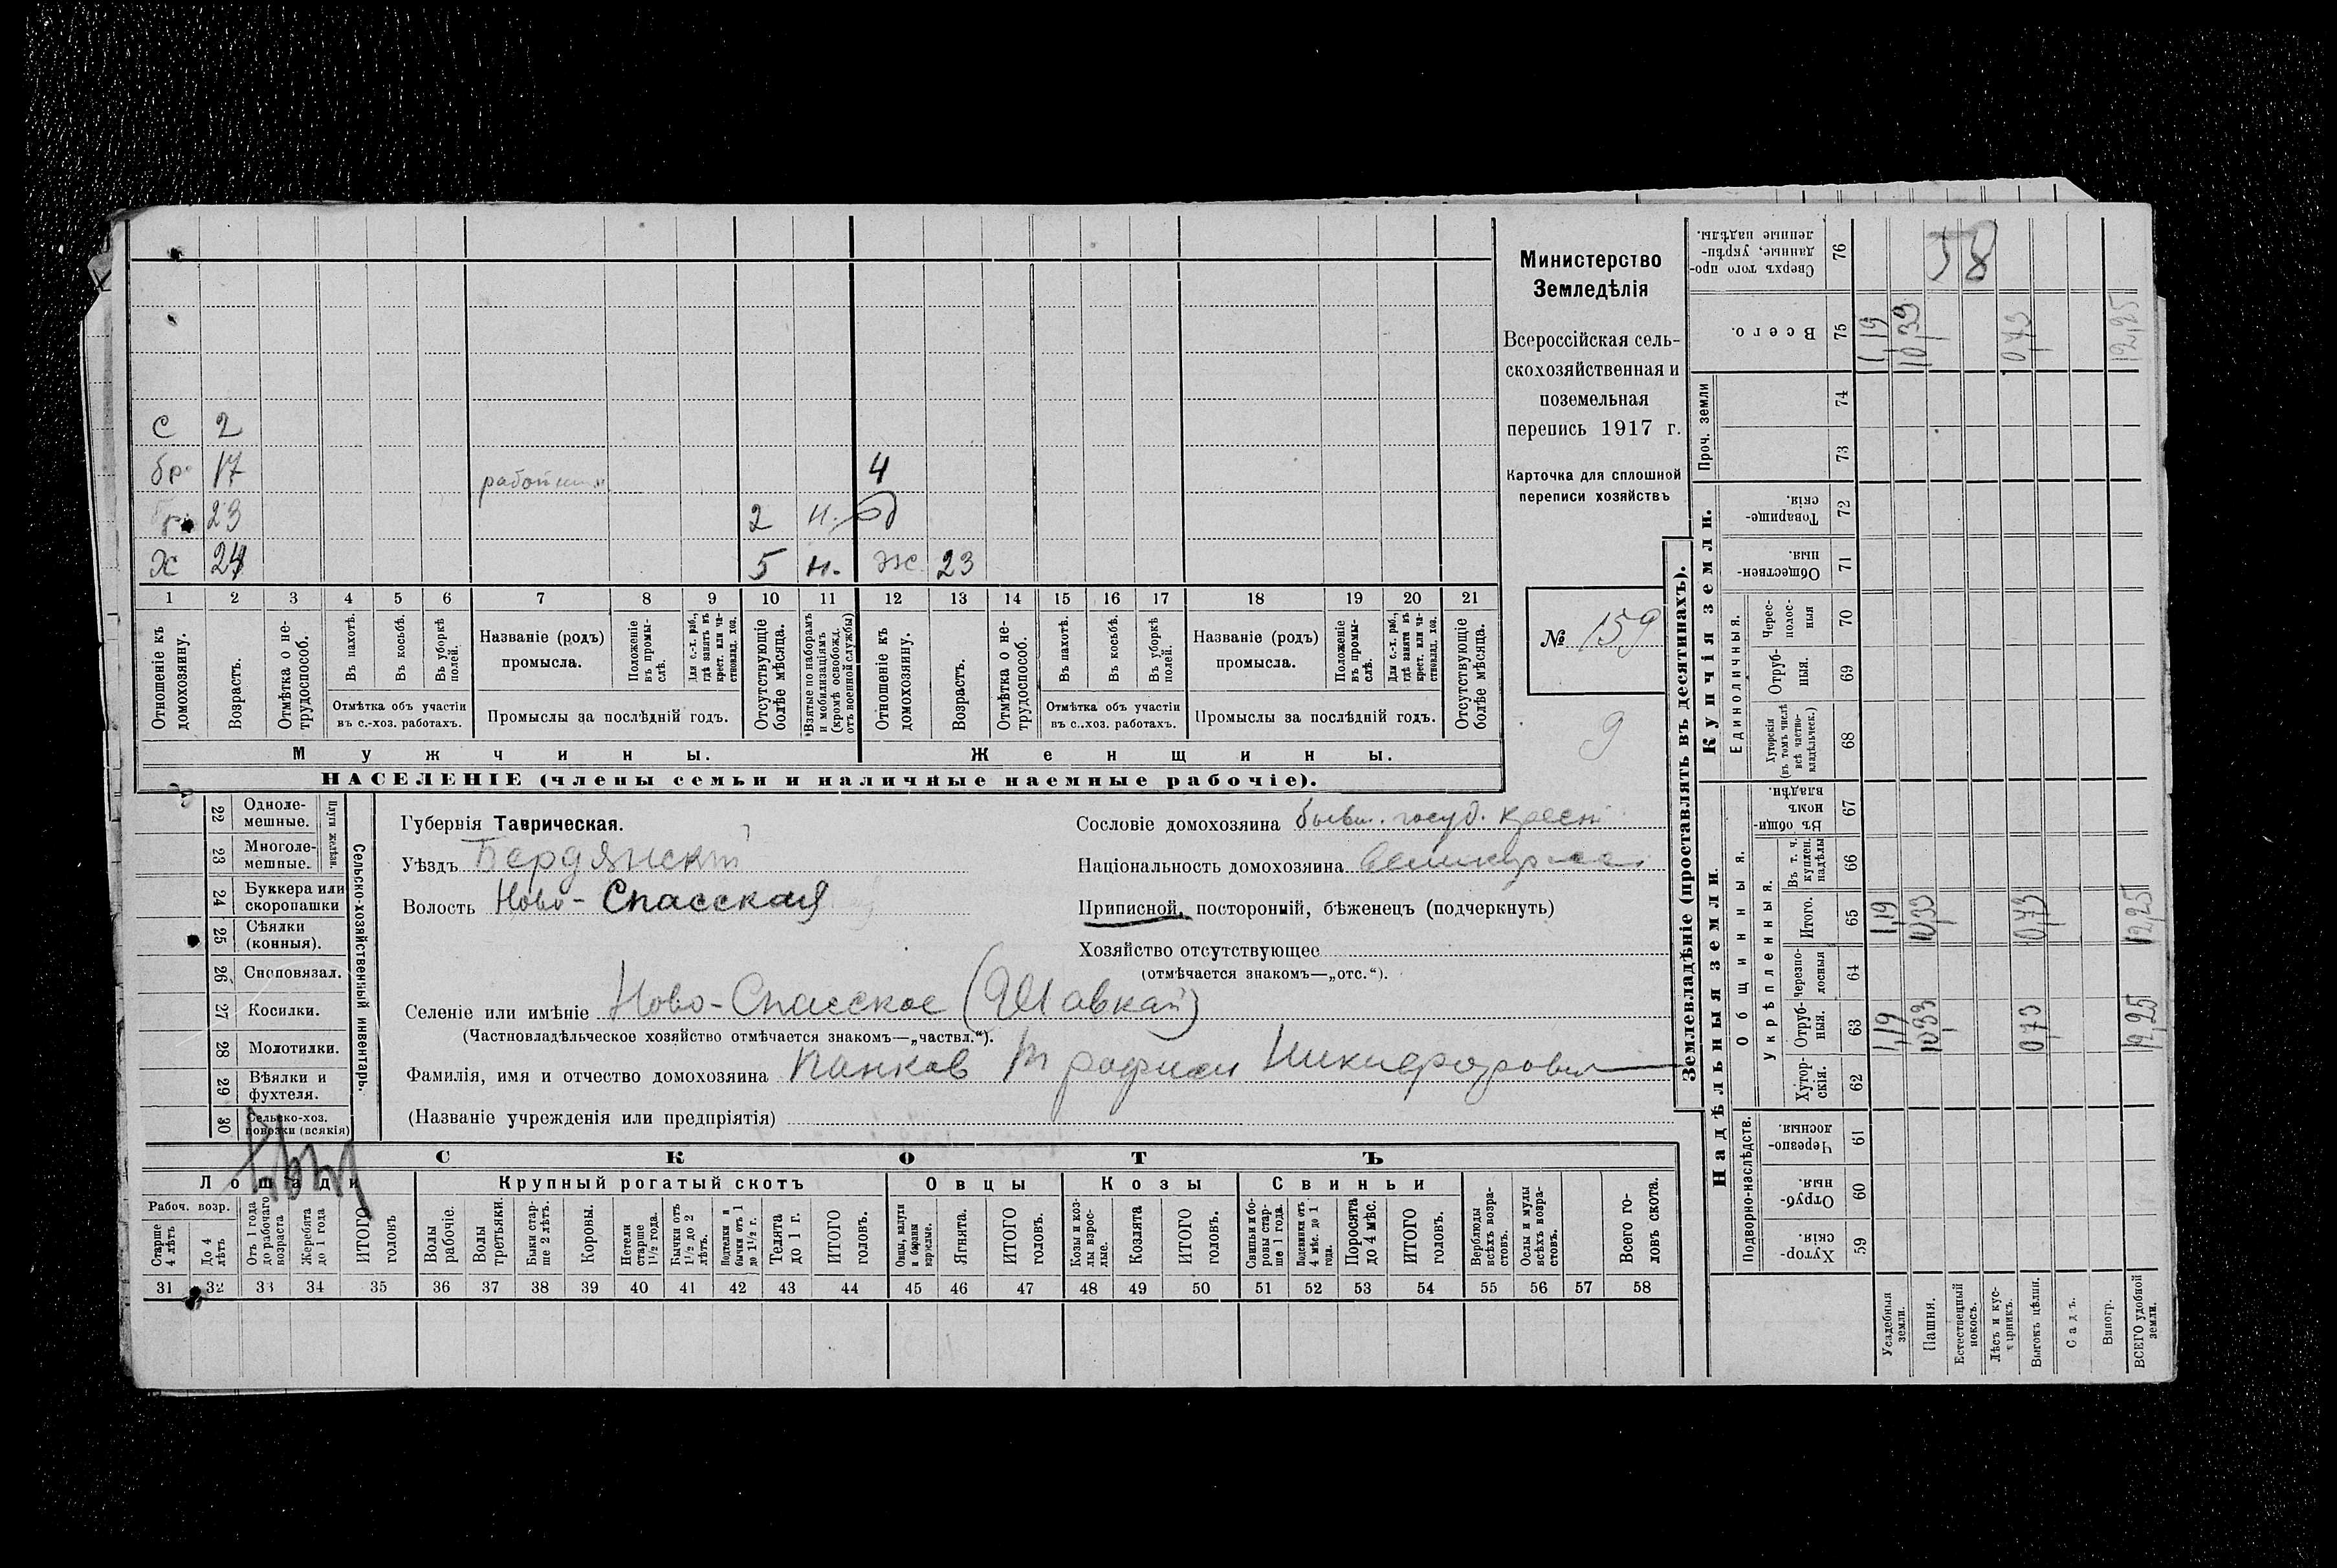 С 2
бр. 17 4
23 2 н.
Х 24 5 н. ж 23
1 2 3 4 5 6 7 8 9 10 11 12 13 14 15 16 17 18 19 20 21
Отношеніе къ домохозяину.
Возрастъ.
Отмѣтка о нетрудоспособ.
Въ пахотѣ.
Въ косьбѣ.
Въ уборкѣ полей.
Отмѣтка объ участіи въ с.-хоз. работахъ.
Названіе (родъ) промысла.
Положеніе въ промыслѣ.
Для с.-х. раб., гдѣ занятъ въ крест. или частновлад. хоз.
Промыслы за послѣдній годъ.
Отсутствующіе болѣе мѣсяца.
Взятые по наборамъ и мобилизаціямъ (кромѣ освобожд. отъ военной службы)
Отношеніе къ домохозяину.
Возрастъ.
Отмѣтка о нетрудоспособ.
Въ пахотѣ.
Въ косьбѣ.
Въ уборкѣ полей.
Отмѣтка объ участіи въ с..хоз. работахъ.
Названіе (родъ) промысла.
Положеніе въ промыслѣ.
Для с.-х. раб., гдѣ занята въ крест. или частновлад. хоз.
Промыслы за послѣдній годъ.
Отсутствующіе болѣе мѣсяца.
Мужчины. Женщины.
НАСЕЛЕНІЕ (члены семьи и наличные наемные рабочіе).
Министерство
Земледѣлія
Всероссійская сель-
скохозяйственная и
поземельная
перепись 1917 г.
Карточка для сплошной
переписи хозяйствъ
№ 159
9
Сельско-хозяйственный инвентарь.
Плуги желѣзн.
22 Однолемешные.
23 Многолемешные.
24 Буккера или скоропашки
25 Сѣялки (конныя).
26 Сноповязал.
27 Косилки.
28 Молотилки.
29 Вѣялки и фухтеля.
30 Сельско-хоз. повозки (всякія)
Губернія Таврическая.
Уѣздъ Бердянскій
Волость Ново-Спасская
Сословіе домохозяина бывш. госуд. крест
Національность домохозяина
Приписной, посторонній, бѣженецъ (подчеркнуть)
Хозяйство отсутствующее
(отмѣчается знакомъ—„отс.“).
Селеніе или имѣніе Ново-Спасское
(Частновладѣльческое хозяйство отмѣчается знакомъ—„частвл.“).
Фамилія, имя и отчество домохозяина Панков Трофим Никифорович
(Названіе учрежденія или предпріятія)
СКОТЪ
Лошади Крупный рогатый скотъ Овцы Козы Свиньи
Рабоч. возр.
Старше 4 лѣтъ
До 4 лѣтъ
Отъ 1 года до рабочаго возраста
Жеребята до 1 года
ИТОГО головъ
Волы рабочіе.
Волы третьяки.
Быки старше 2 лѣтъ.
Коровы.
Нетели старше 1½ года.
Бычки отъ 1½ до 2 лѣтъ.
Подтелки и бычки отъ 1 до 1½ г.
Телята до 1 г.
ИТОГО головъ.
Овцы, валухи и бараны взрослые.
Ягнята.
ИТОГО головъ.
Козы и козлы взрослые.
Козлята
ИТОГО головъ.
Свиньи и боровы старше 1 года.
Подсвинки отъ 4 мѣс. до 1 года.
Поросята до 4 мѣс.
ИТОГО головъ.
Верблюды всѣхъ возрастовъ.
Ослы и мулы всѣхъ возрастовъ.
Всего головъ скота.
31 32 33 34 35 36 37 38 39 40 41 42 43 44 45 46 47 48 49 50 51 52 53 54 55 56 57 58
Землевладѣніе (проставлять въ десятинахъ).
Надѣльныя земли.
Подворно-наслѣдств.
59 Хуторскія.
60 Отрубныя.
61 Черезполосныя.
Общинныя.
Укрѣпленныя.
62 Хуторскія.
63 Отрубныя. 1,19 10,33 0,73 12,25
64 Черезполосныя
65 Итого. 1,19 10,33 0,73 12,25
66 Въ т. ч. куплен. надѣлы
67 Въ общинномъ владѣн.
Купчія земли.
Единоличныя.
68 Хуторскія (въ томъ числѣ всѣ частновладѣльческ.)
69 Отрубныя.
70 Чересполосныя
71 Общественныя.
72 Товарищескія.
Проч. земли
73
74
75 Всего. 1,19 10,33 0,73 12,25
76 Сверхъ того проданные, укрѣпленные надѣлы.
58
Усадебныя земли.
Пашня.
Естественный покосъ.
Лѣсъ и кустарникъ.
Выгонъ цѣлин.
Садъ.
Виногр.
ВСЕГО удобной земли.